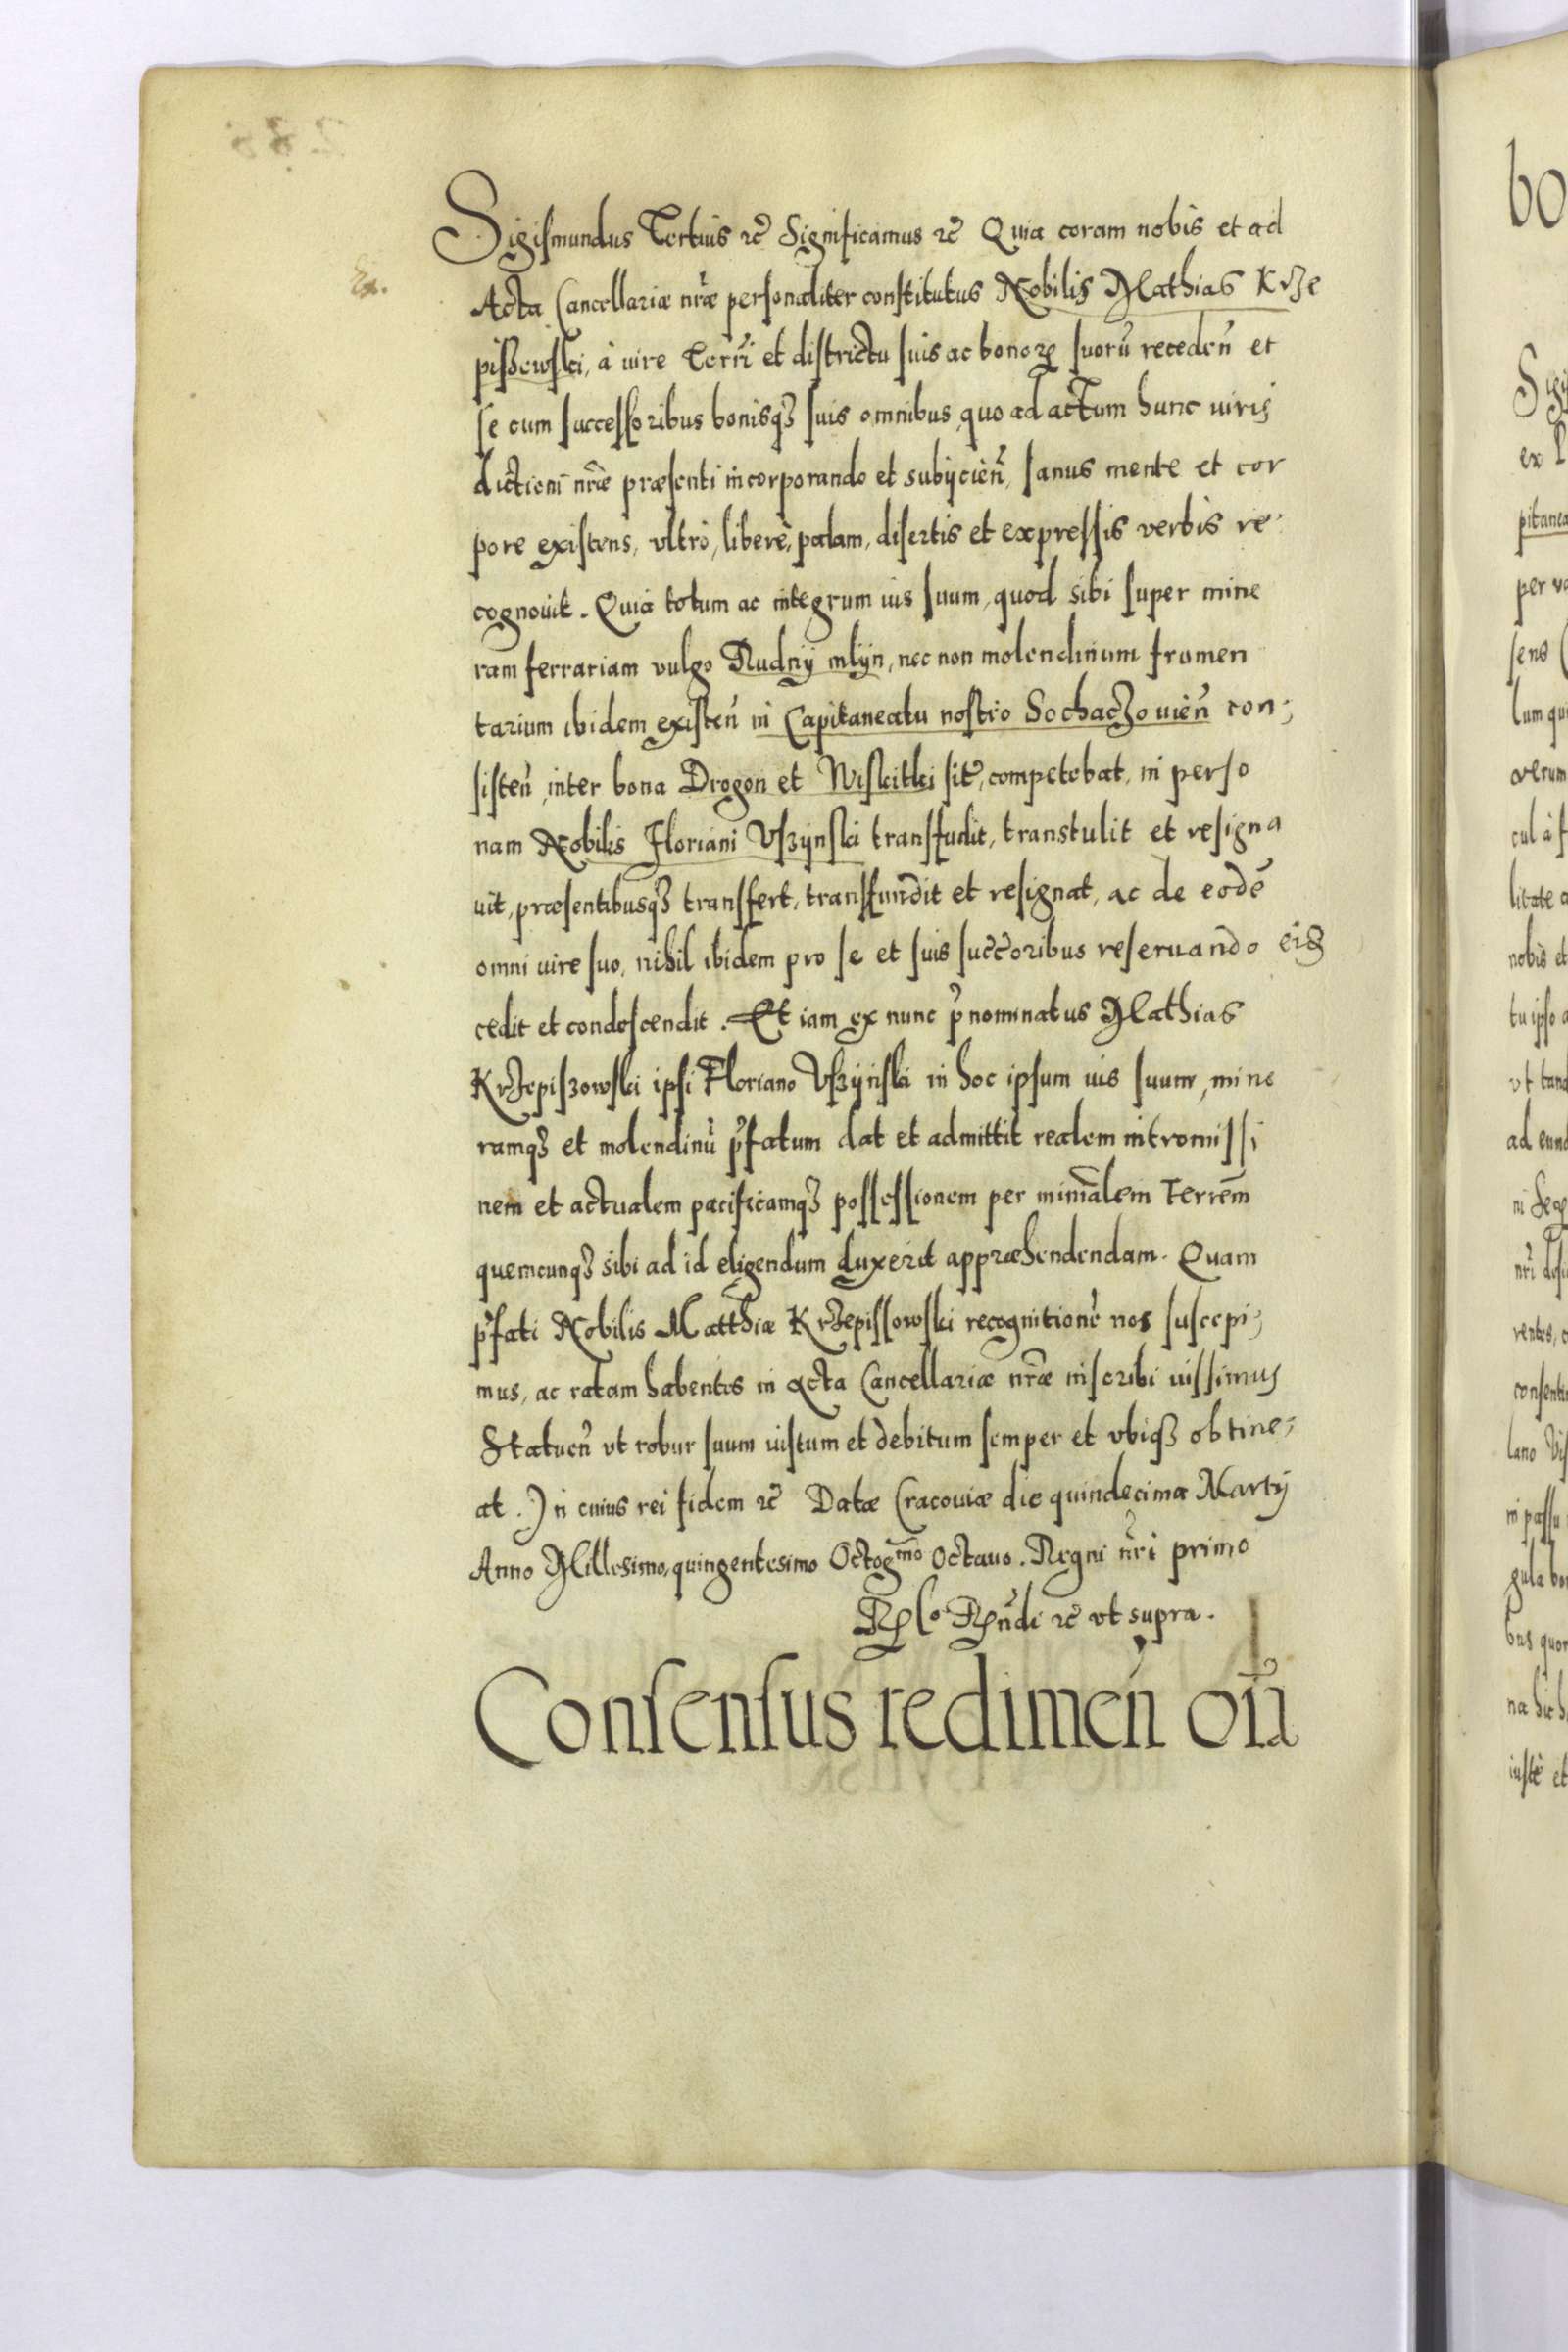 Sigismundus Tertius etc̃ Significamus etc̃ Quia coram nobis et ad
Ex.
Acta Cancellariæ nr̃æ personaliter constitutus Nobilis Mathias Krze
piszewski, à iure Terrr̃i et districtu suis ac bonorꝝ suorũ recedeñ et
se cum successoribus bonisqꝫ suis omnibus, quo ad actum hunc iuris
dictioni nr̃æ præsenti incorporando et subÿcieñ, sanus mente et cor
pore existens, vltrò, liberè, palam, disertis et expressis verbis re-
cognouit. Quia totum ac integrum ius suum, quod sibi super mine
ram ferrariam vulgo Rudnÿ mlÿn, nec non molendinum frumen
tarium ibidem existeñ in Capitaneatu nostro Sochaczouieñ con-
sisteñ, inter bona Drogon et Wiskitki sit̃, competebat, in perso
nam Nobilis Floriani Vszÿnski transfudit, transtulit et resigna
uit, præsentibusqꝫ transfert, transfundit et resignat, ac de eodẽ
omni iure suo, nihil ibidem pro se et suis succ̃oribus reseruando eis
cedit et condescendit. Et iam ex nunc p̃nominatus Mathias
Krzepiszowski ipsi Floriano Vszÿnski in hoc ipsum ius suum, mine
ramqꝫ et molendinũ p̃fatum dat et admittit realem intromissi
nem et actualem pacificamqꝫ possessionem per minir̃alem Terrem̃
quemcunqꝫ sibi ad id eligendum duxerit appræhendendam. Quam
p̃fati Nobilis Matthiæ Krzepissowski recognitionẽ nos suscepi-
mus, ac ratam habentes in acta Cancellariæ nr̃æ inscribi iussimus
Statueñ vt robur suum iustum et debitum semper et vbiqꝫ obtine-
at. In cuius rei fidem etc̃ Datæ Cracouiæ die quindecima Martÿ
Anno Millesimo, quingentesimo Octogmo Octauo. Regni nr̃i primo
Rꝑlo Rꝑñdi etc̃ vt supra.
Consensus redimeñ oĩa